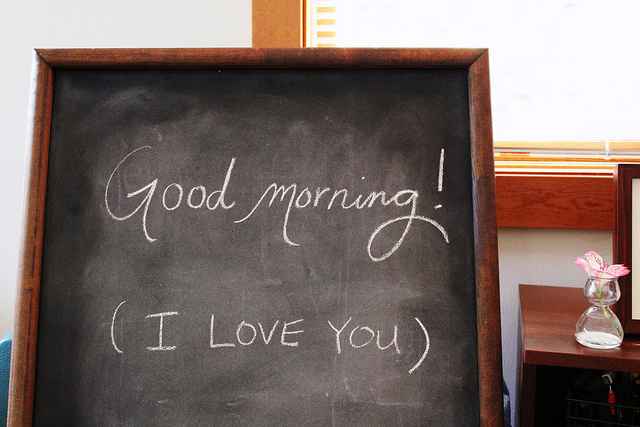 Good morning!
(I LOVE YOU)